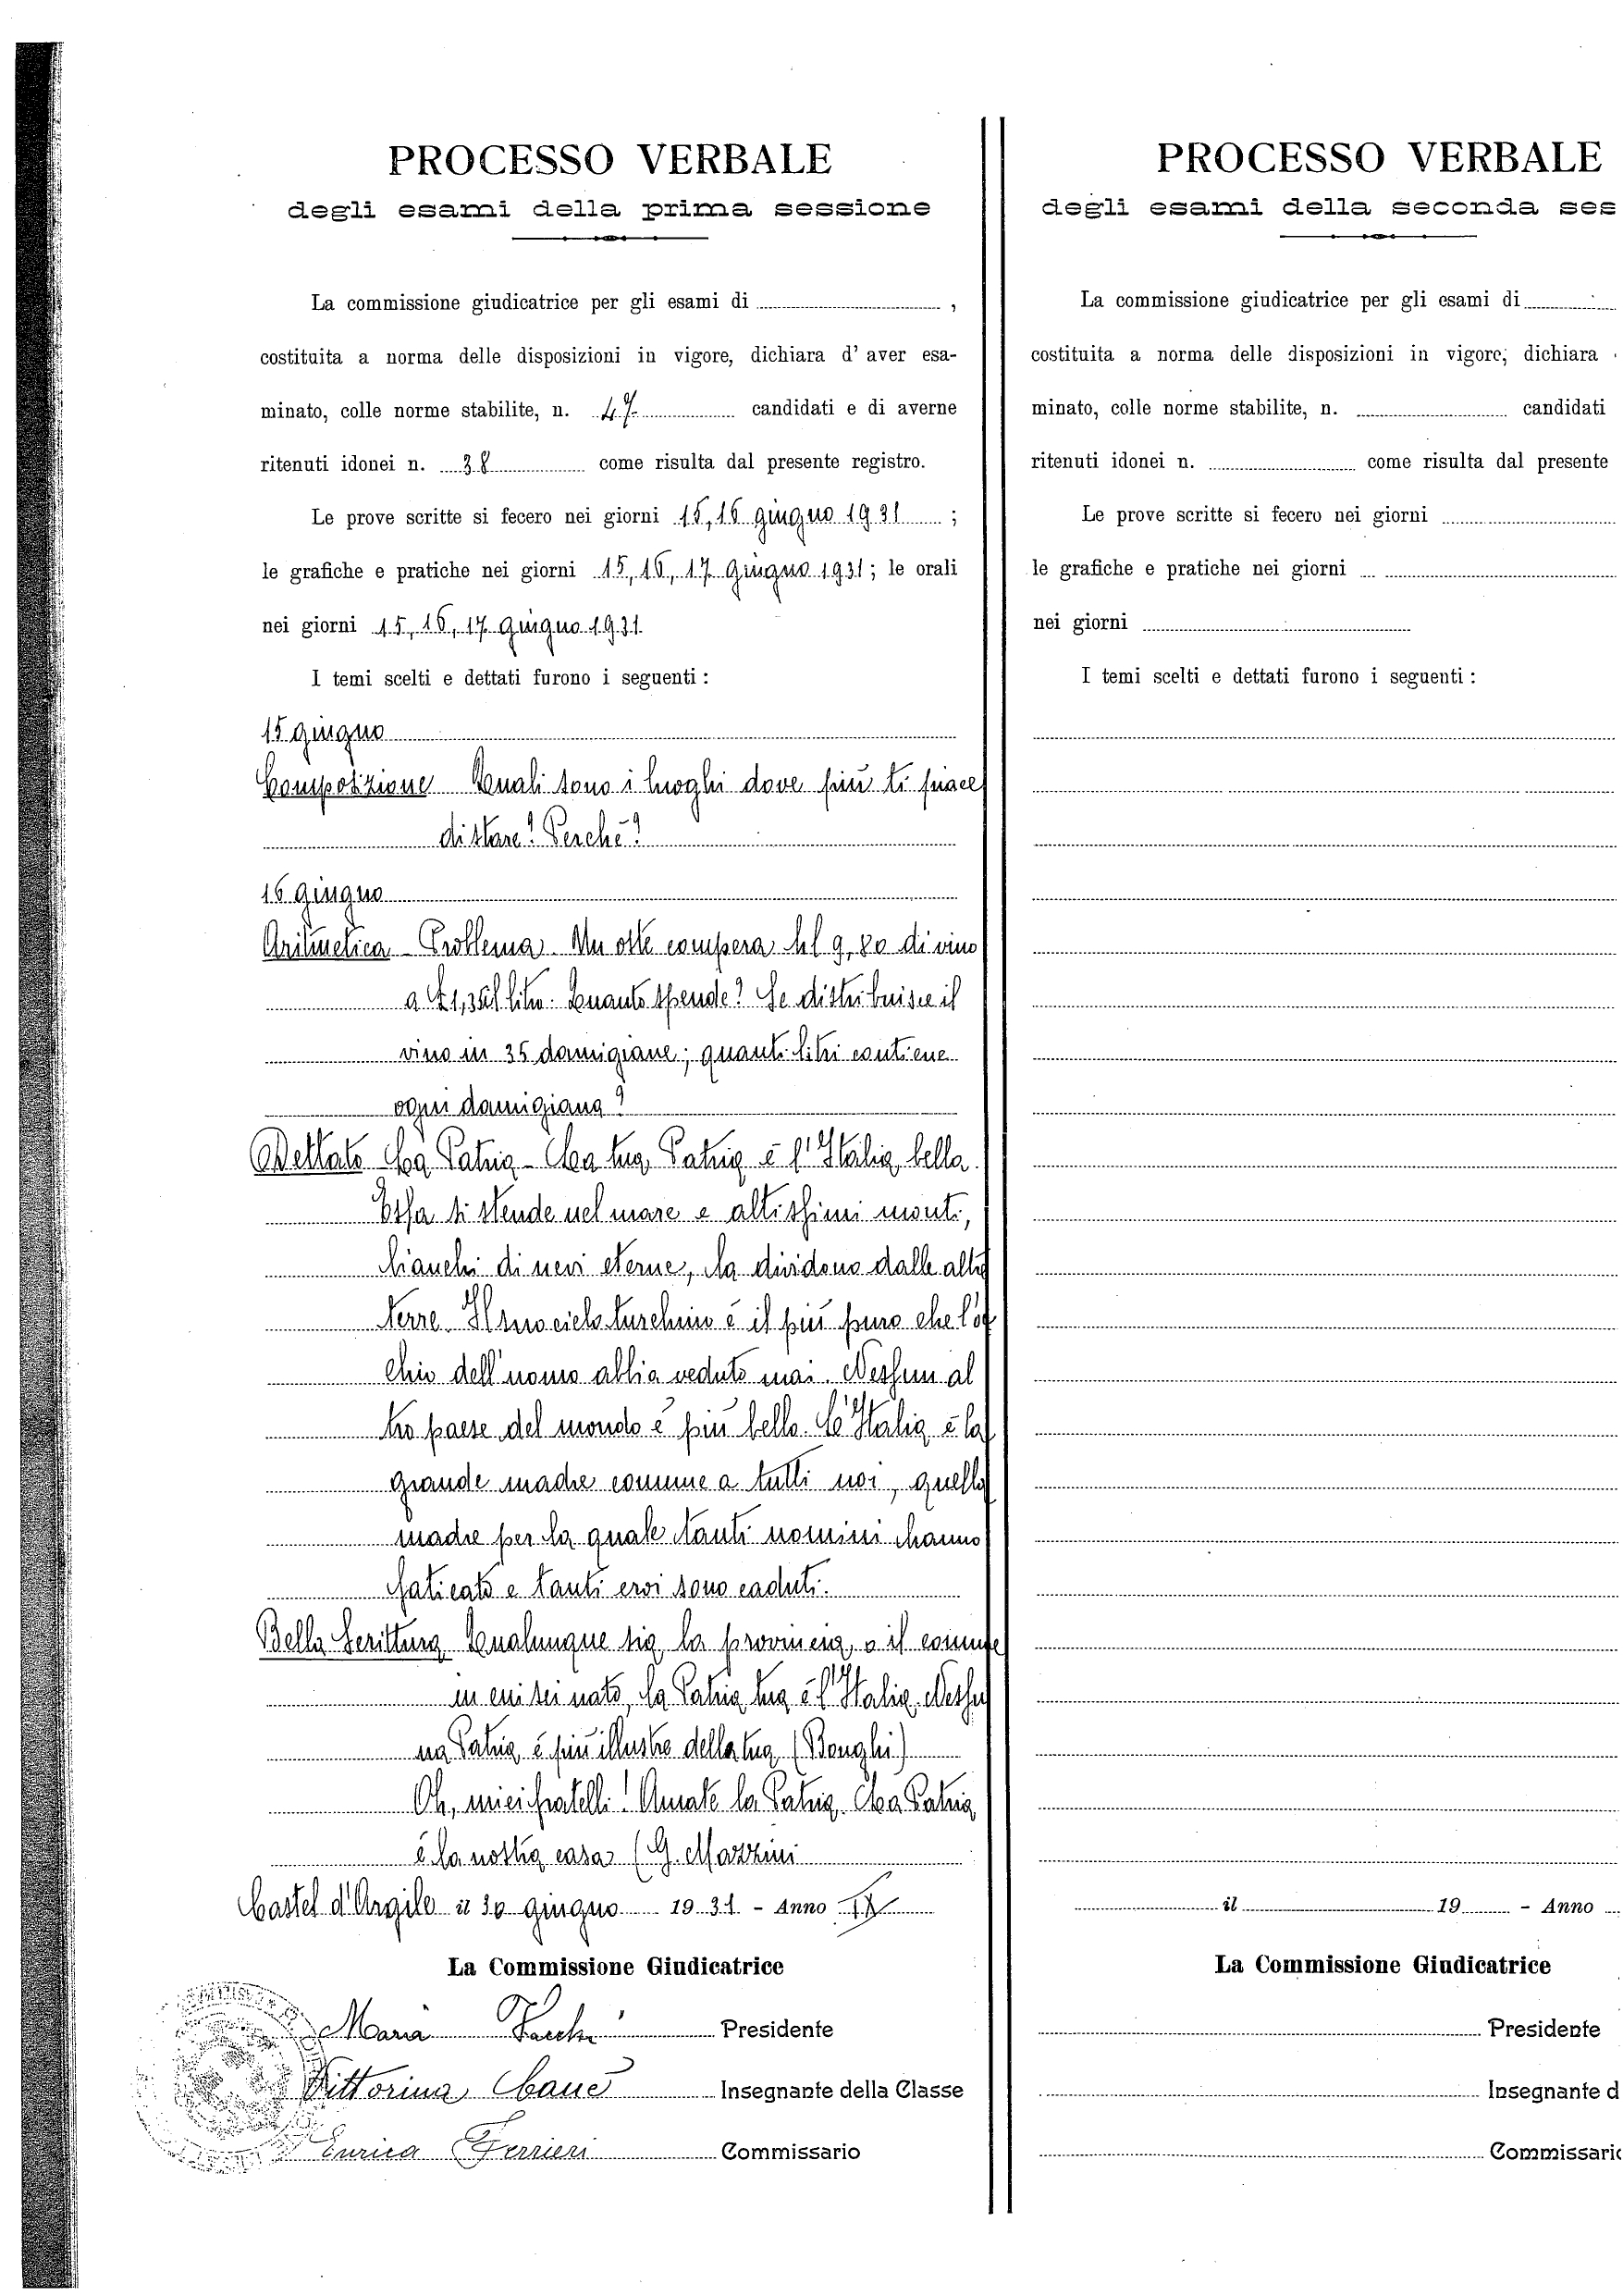 PROCESSO VERBALE
degli esami della prima sessione
La commissione giudicatrice per gli esami di ,
costituita a norma delle disposizioni in vigore, dichiara d' aver esa-
minato, colle norme stabilite, n. 47 candidati e di averne
ritenuti idonei n. 38 come risulta dal presente registro.
Le prove scritte si fecero nei giorni 15, 16 giugno 1931 ;
le grafiche e pratiche nei giorni 15, 16, 17 Giugno 1931 ; le orali
nei giorni 15, 16, 17 Giugno 1931
I temi scelti e dettati furono i seguenti :
15 giugno
Composizione Quali sono i luoghi dove più ti piace
di stare? Perchè?
16 Giugno
Aritmetica - Problema. Un oste compera hl 9,80 di vino
a il litro. Quanto spende? Se distribuisce il
vino in 35 damigiane; quanti litri contiene
ogni damigiana?
Dettato La Patria - La tua Patria è l'Italia bella.
Essa si stende nel mare e altissimi monti,
bianchi di nevi eterne, la dividono dalle altre
terre. Il suo cielo turchino è il più puro che l'oc
chio dell'uomo abbia veduto mai. Nessun al
tro paese del mondo è più bello. L'Italia è la
grande madre comune a tutti noi, quella
madre per la quale tanti uomini hanno
faticato e tanti eroi sono caduti.
Bella Scrittura Qualunque sia la provincia, o il comune
in cui sei nato, la Patria tua è l'Italia. Nessu
na Patria è più illustre della tua (Bonghi)
Oh, miei fratelli! Amate la Patria. La Patria
è la nostra casa (G. Mazzini
Castel d'Argile il 30 giugno 1931 - Anno IX
La Commissione Giudicatrice
Maria Presidente
Vittorina Insegnante della Classe
Enrica Ferrieri Commissario
PROCESSO VERBALE
degli esami della seconda ses
La commissione giudicatrice per gli esami di
costituita a norma delle disposizioni in vigore, dichiara
minato, colle norme stabilite, n. candidati
ritenuti idonei n. come risulta dal presente
Le prove scritte si fecero nei giorni
le grafiche e pratiche nei giorni
nei giorni
I temi scelti e dettati furono i seguenti :
il 19 - Anno
La Commissione Giudicatrice
Presidente
Insegnante d
Commissario